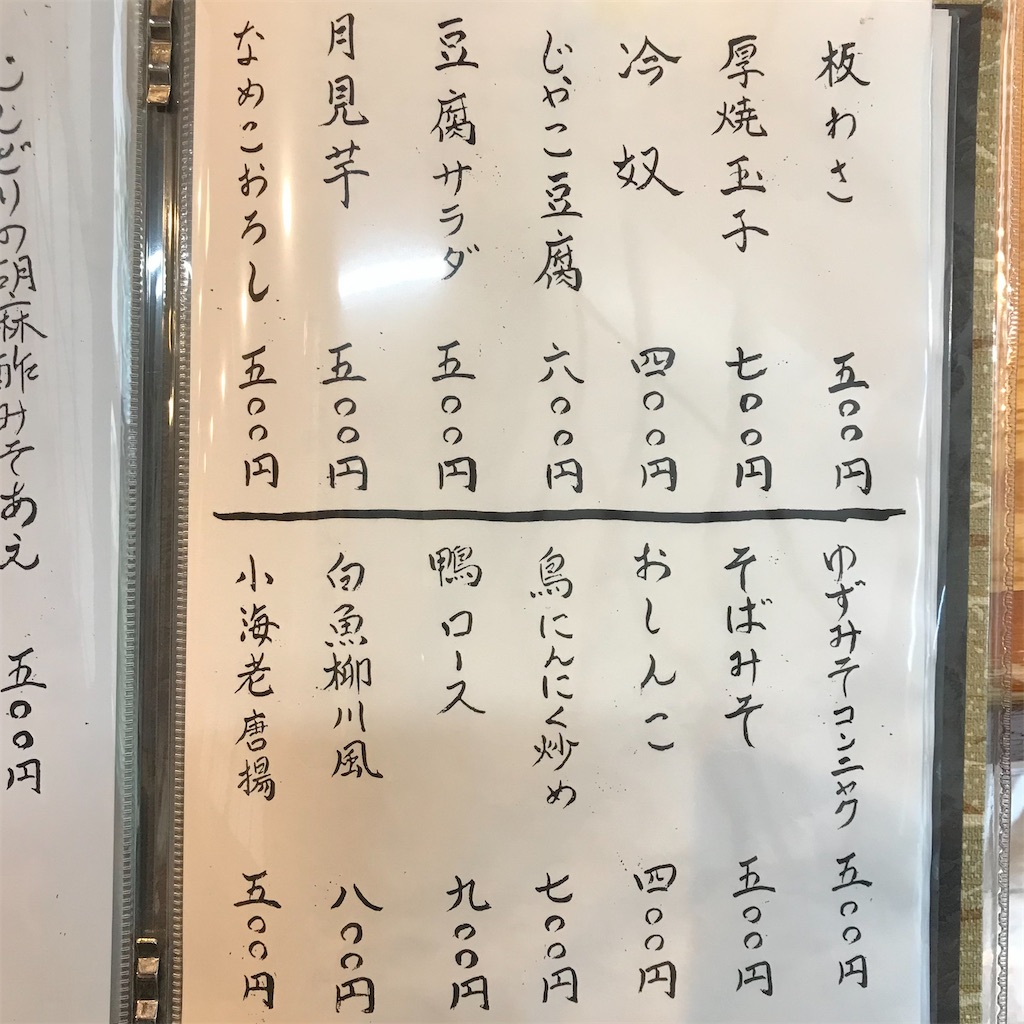 板わさ 五〇〇円
厚焼玉子 七〇〇円
冷奴 四〇〇円
じゃこ豆腐 六〇〇円
豆腐サラダ 五〇〇円
月見芋 五〇〇円
なめこおろし 五〇〇円
ゆずみそコンニャク 五〇〇円
そばみそ 五〇〇円
おしんこ 四〇〇円
鳥にんにく炒め 七〇〇円
鴨ロース 九〇〇円
白魚柳川風 八〇〇円
小海老唐揚 五〇〇円
どりの胡麻酢みそあえ 五〇〇円